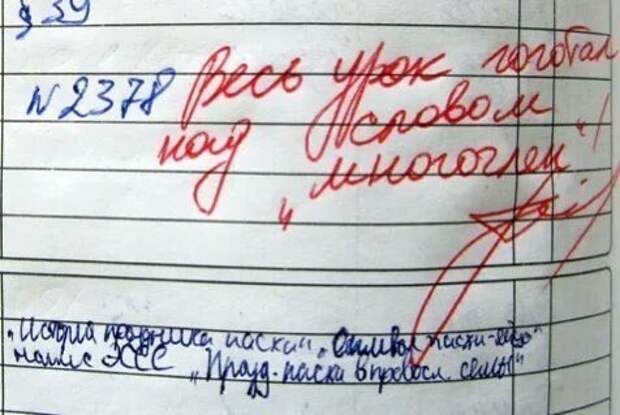 § 39
N 2378
Весь урок гоготал
над словом
„многочлен"!
„История праздника пасхи", „Символ пасхи-яйцо"
напис ЭССЕ „Празд. пасха в правосл. семье"